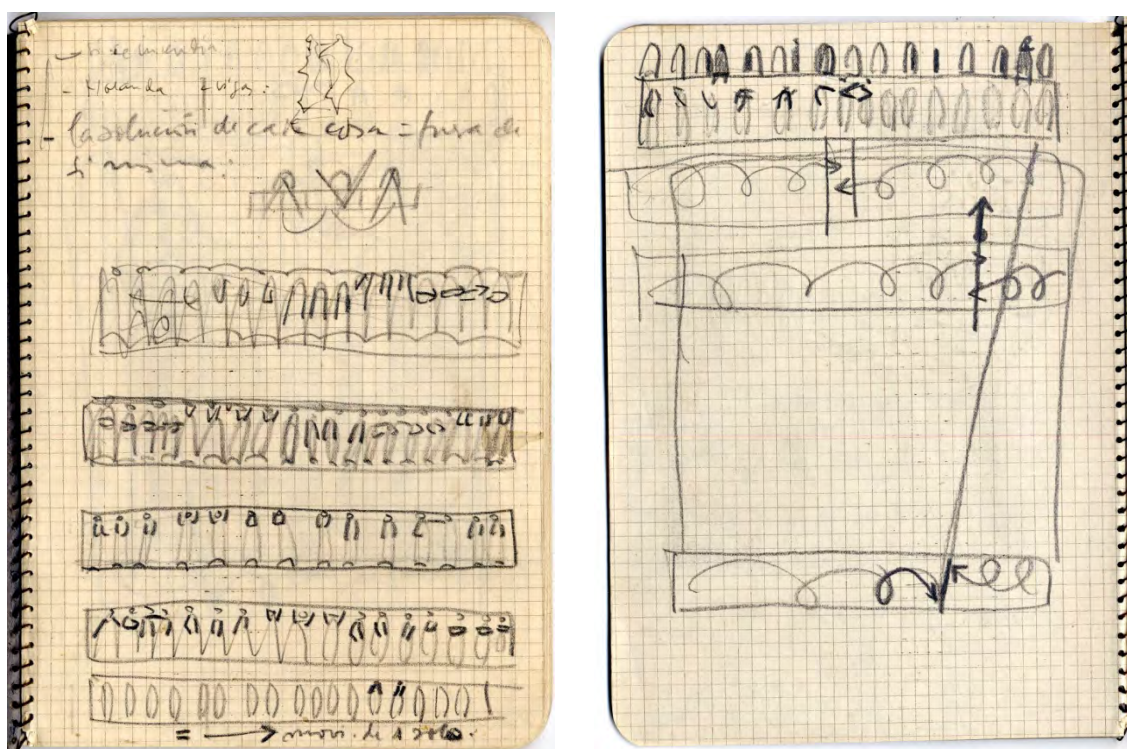 - Holanda 2 vigas.
- la solución de cada cosa = fuera de
si misma.
= → movi. de 1 solo.